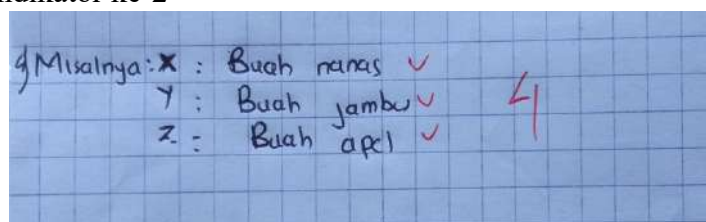 Misalnya: X : Buah nanas ✓
Y : Buah jambu ✓
Z : Buah apel ✓
4